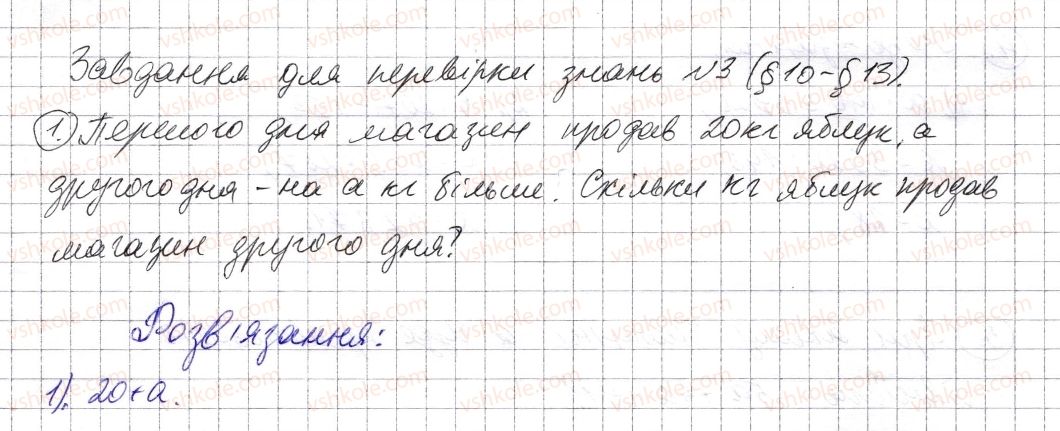 Завдання для перевірки знань №3 (§10-§13).
1. Першого дня магазин продав 20 кг яблук, а
другого дня - на а кг більше. Скільки кг яблук продав
магазин другого дня?
Розв'язання:
1). 20+а.